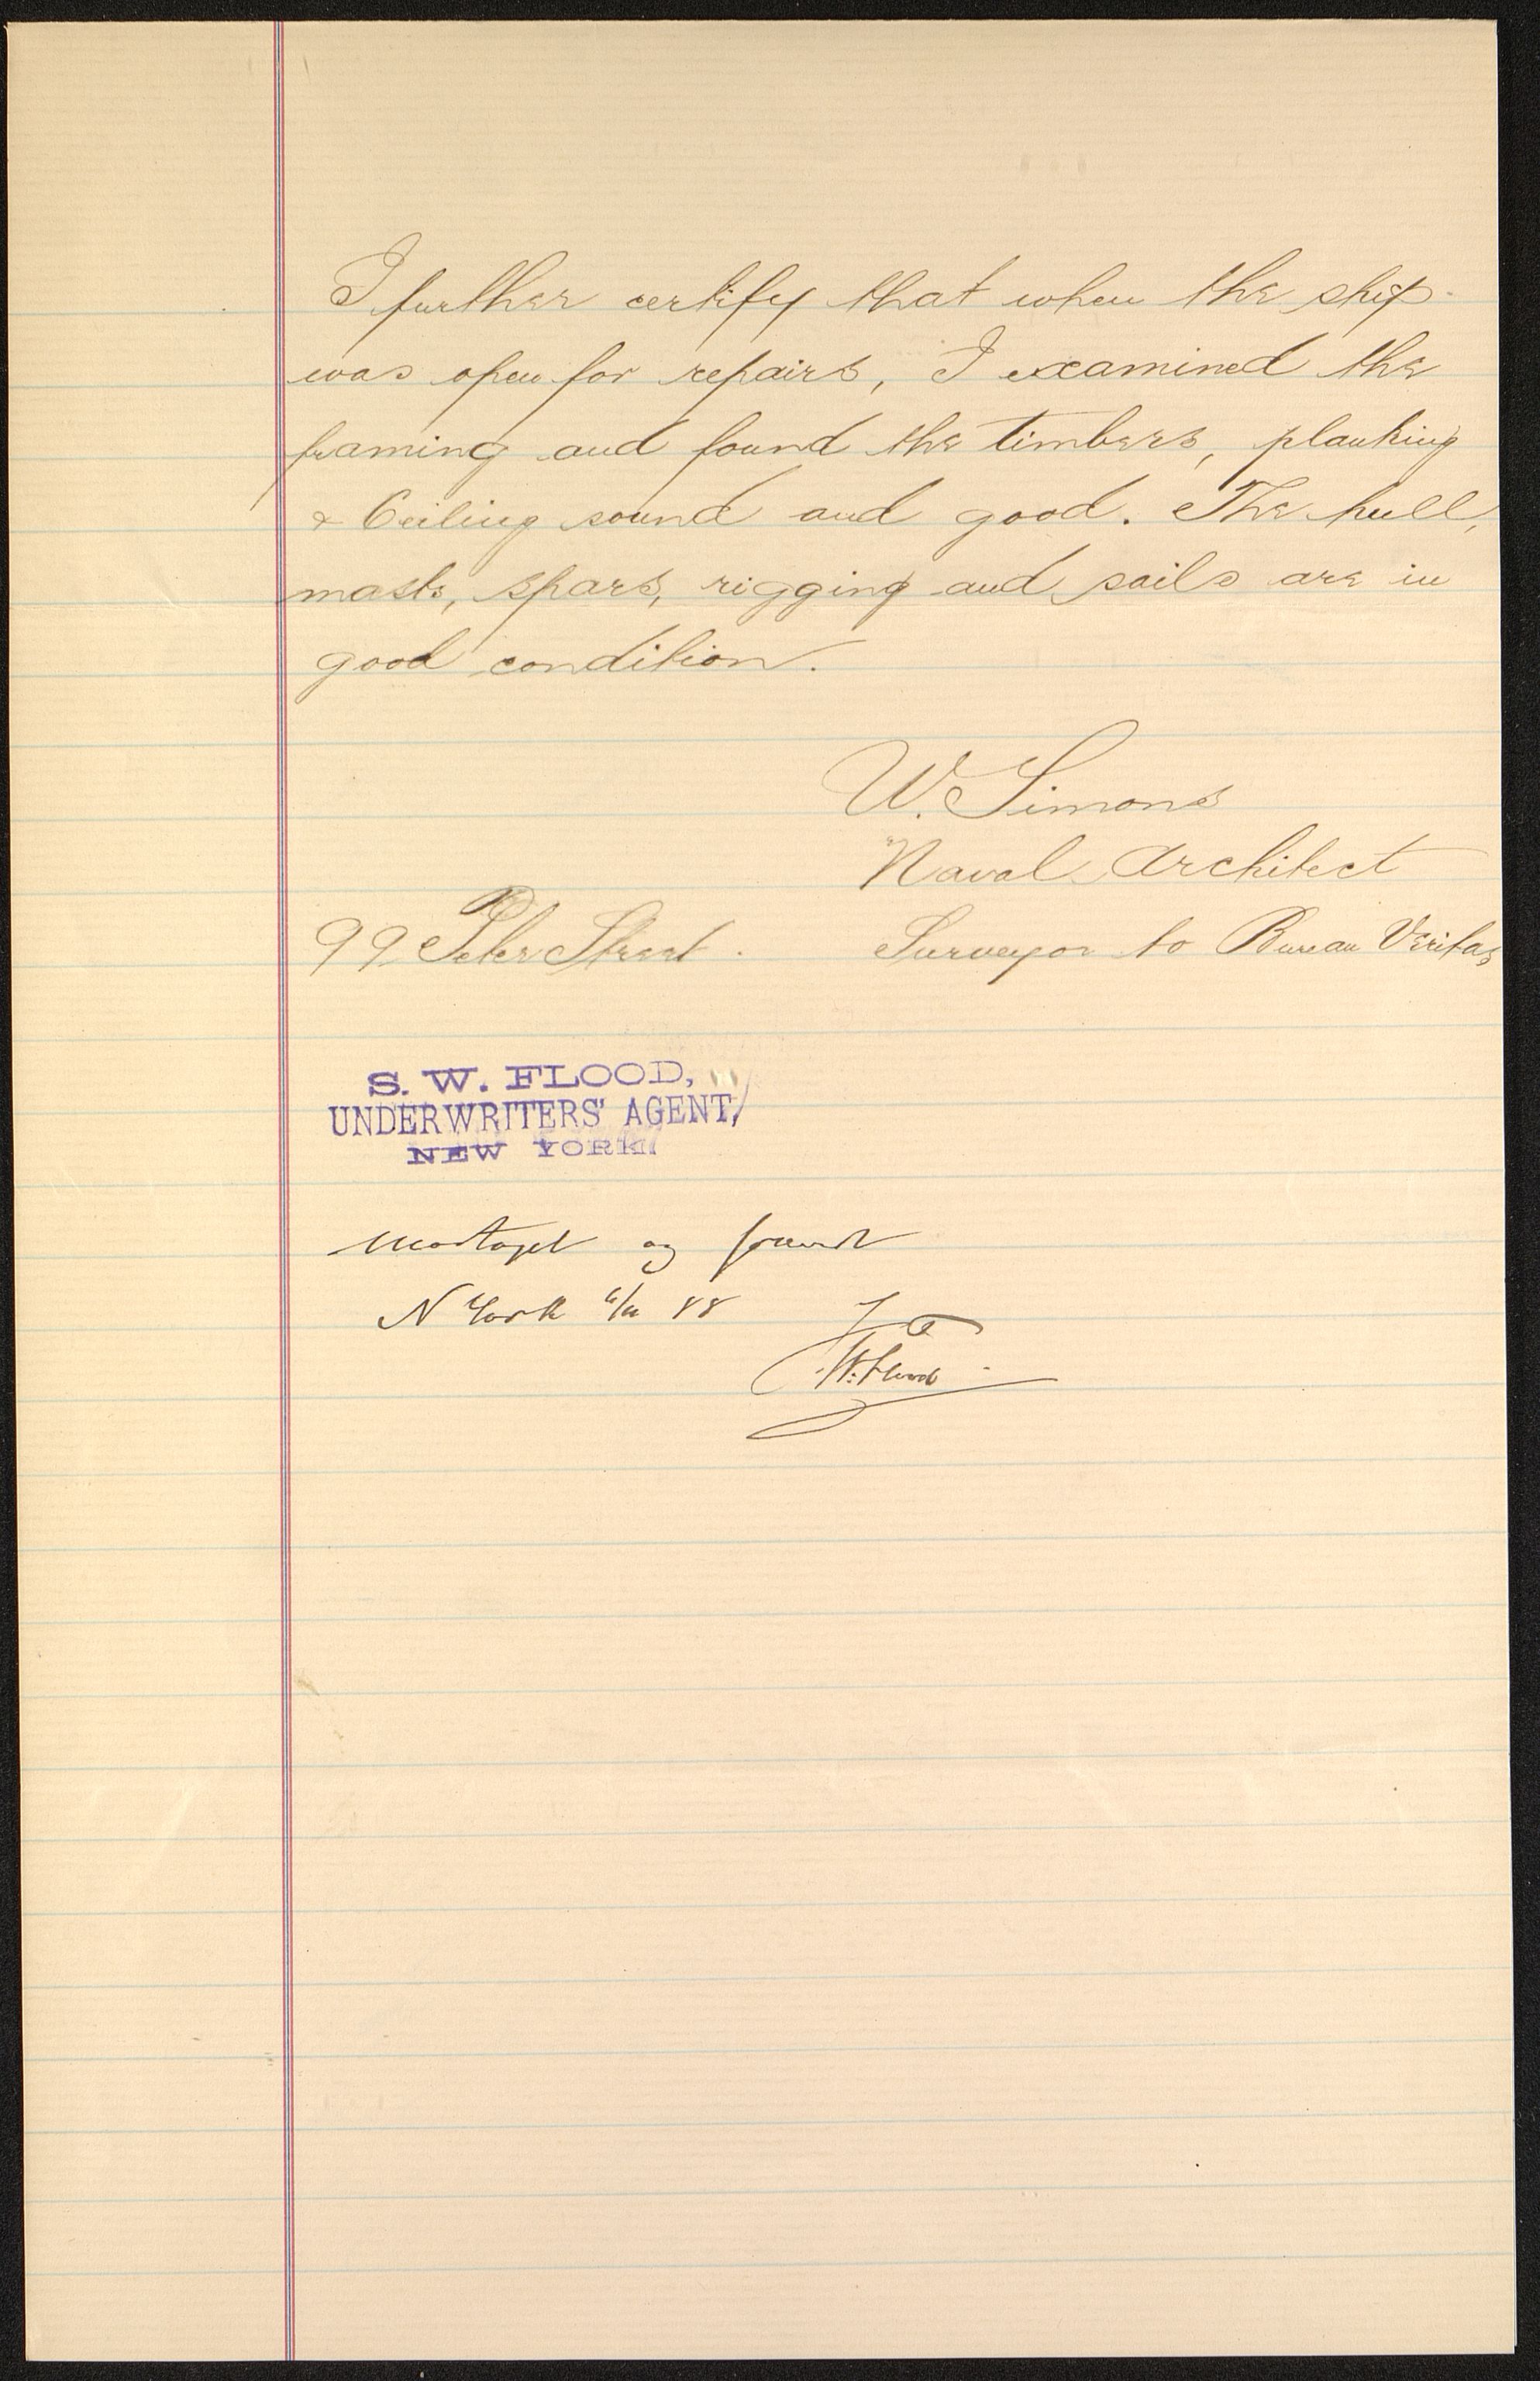 I further certify that when the ship
was open for repairs, I examined the
framing and found the timbers, planking
& Ceiling sound and good. The hull,
masts, spars, rigging and sails are in
good condition.
W. Simons
Naval Architect
99 Peter Street. Surveyor to Bureau Veritas
S. W. FLOOD,
UNDERWRITERS' AGENT,
NEW YORK
Modtaget og
N York 88
W. Flood